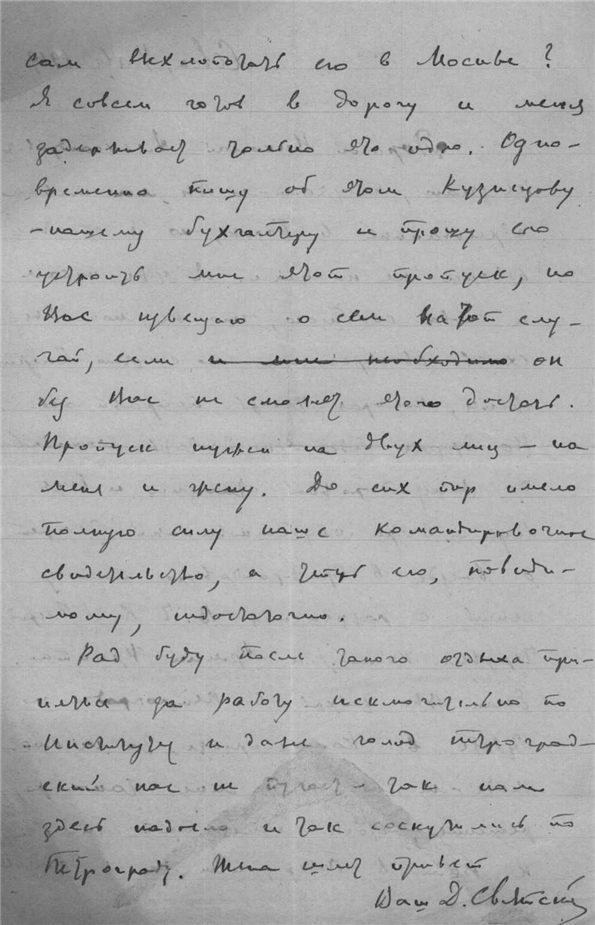 сам выхлопотать его в Москве?
Я совсем готов в дорогу и меня
задерживает только это одно. Одно-
временно пишу об этом Кузнецову
- нашему бухгалтеру и прошу его
устроить мне этот пропуск, но
Вас извещаю о сем на тот слу-
чай, если и мне необходимо он
без Вас не сможет этого достать.
Пропуск нужен на двух лиц - на
меня и жену. До сих пор имело
полную силу наше командировочное
свидетельство, а теперь его, повиди-
мому, недостаточно.
Рад буду после такого отдыха при-
няться за работу исключительно по
Институту и даже голод петроград-
ский нас не пугает - так нам
здесь надоело и так соскучились по
Петрограду. Жена шлет привет
Ваш Д. Святский